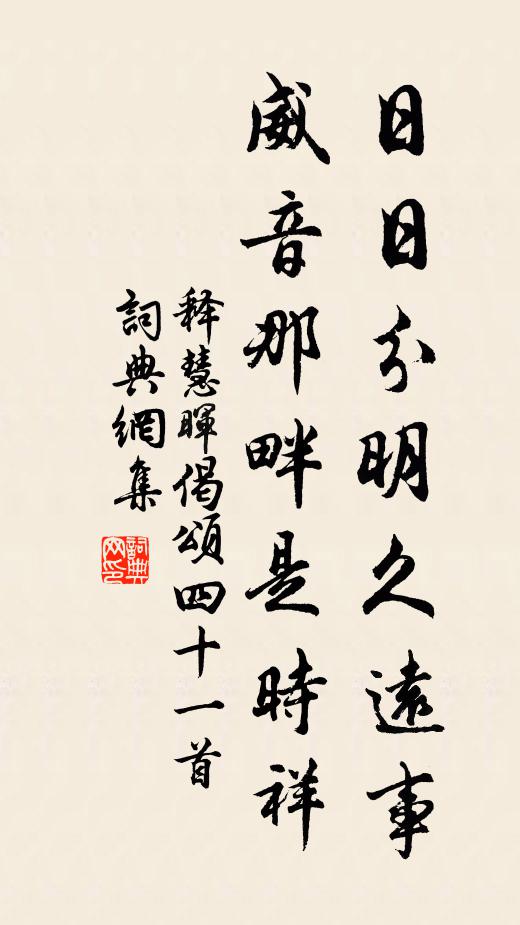 日日分明久遠事
威音那畔是時祥
释慧暉偈頌四十一首
詞典網集
詞典网印